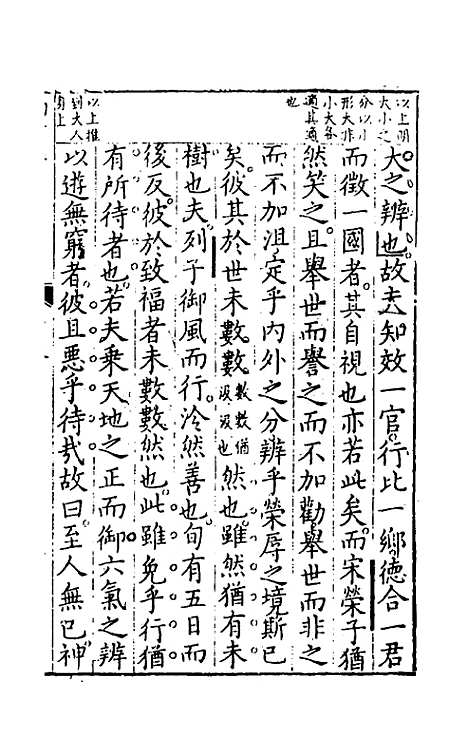 以上明
大小之
分以小
形大非
小大各
適其適
也
以上推
到大人
身上
大之辨也故夫知效一官行比一鄉德合一君
而徵一國者其自視也亦若此矣而宋榮子猶
然笑之且舉世而譽之而不加勸舉世而非之
而不加沮定乎內外之分辨乎榮辱之境斯已
矣彼其於世未數數數數猶汲汲也然也雖然猶有未
樹也夫列子御風而行泠然善也旬有五日而
後反彼於致福者未數數然也此雖免乎行猶
有所待者也若夫乘天地之正而御六氣之辨
以遊無窮者彼且惡乎待哉故曰至人無已神